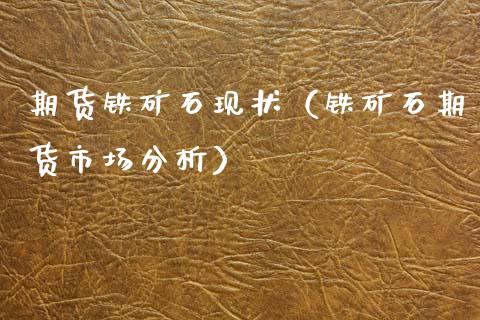 期货铁矿石现状（铁矿石期
货市场分析）